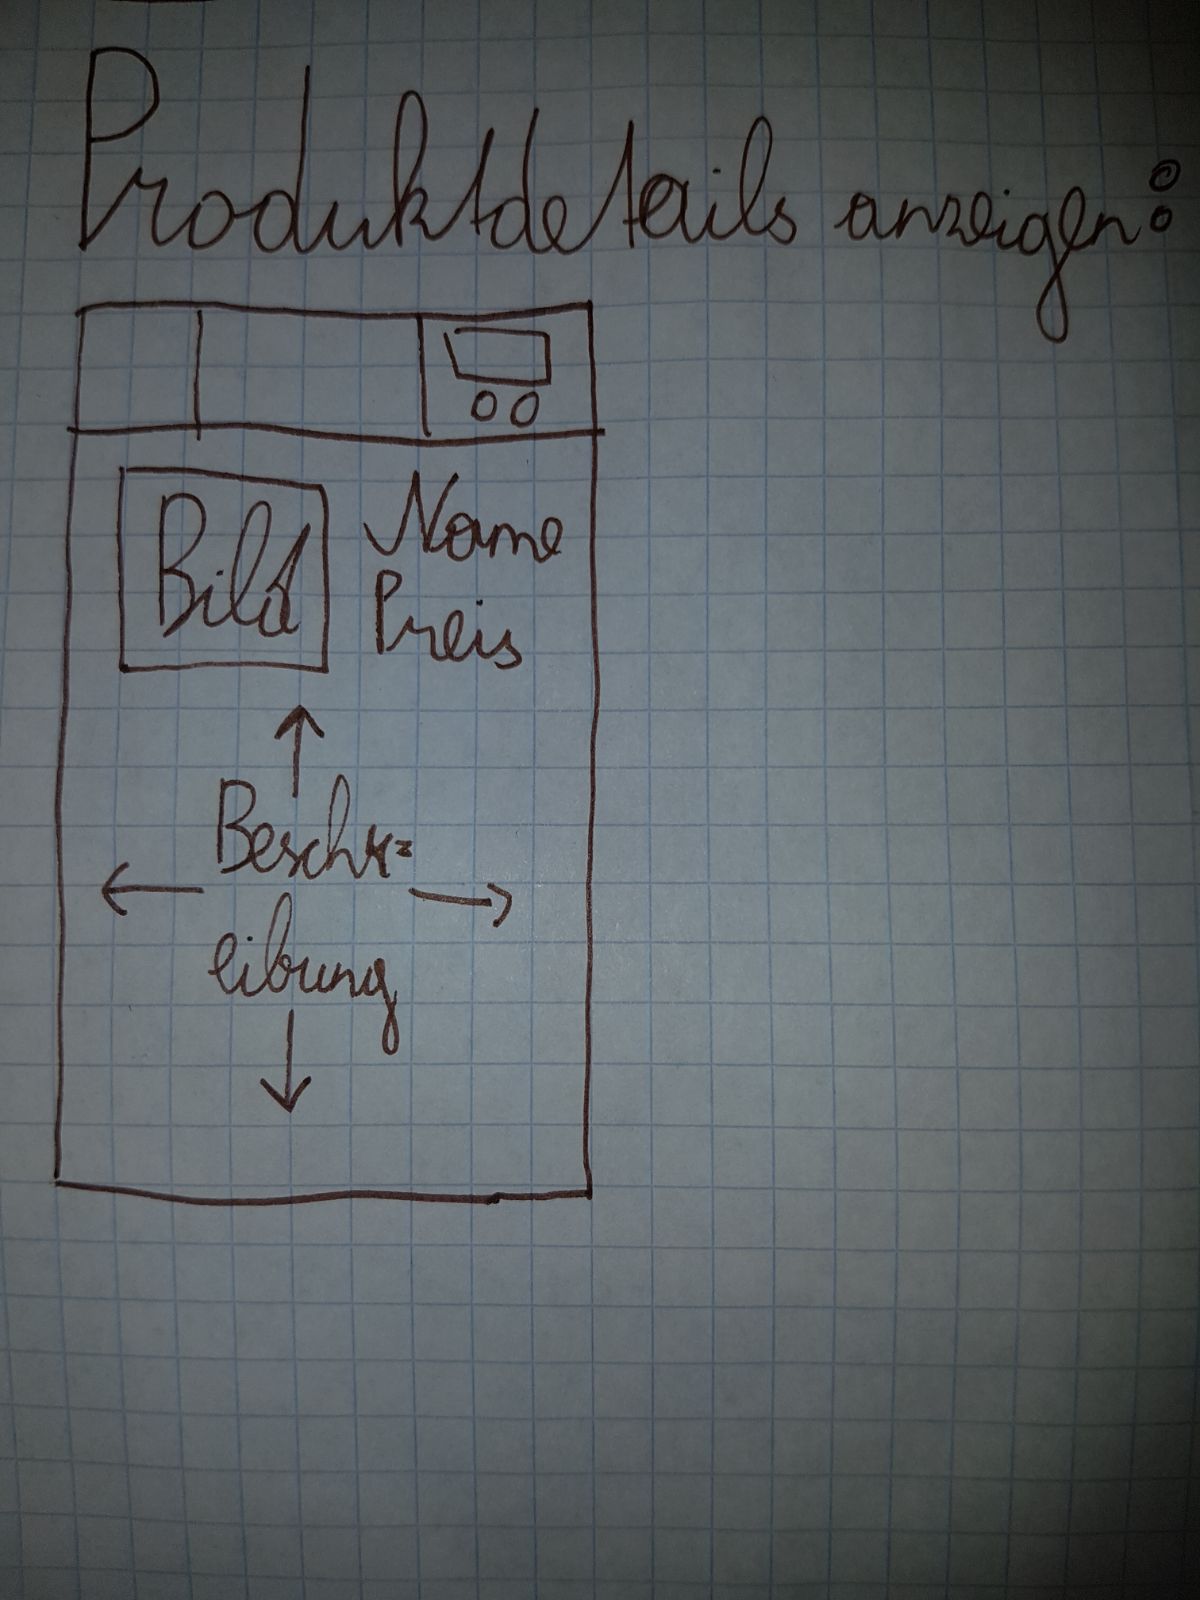 Produktdetails anzeigen:
Bild
Name
Preis
Beschr=
eibung